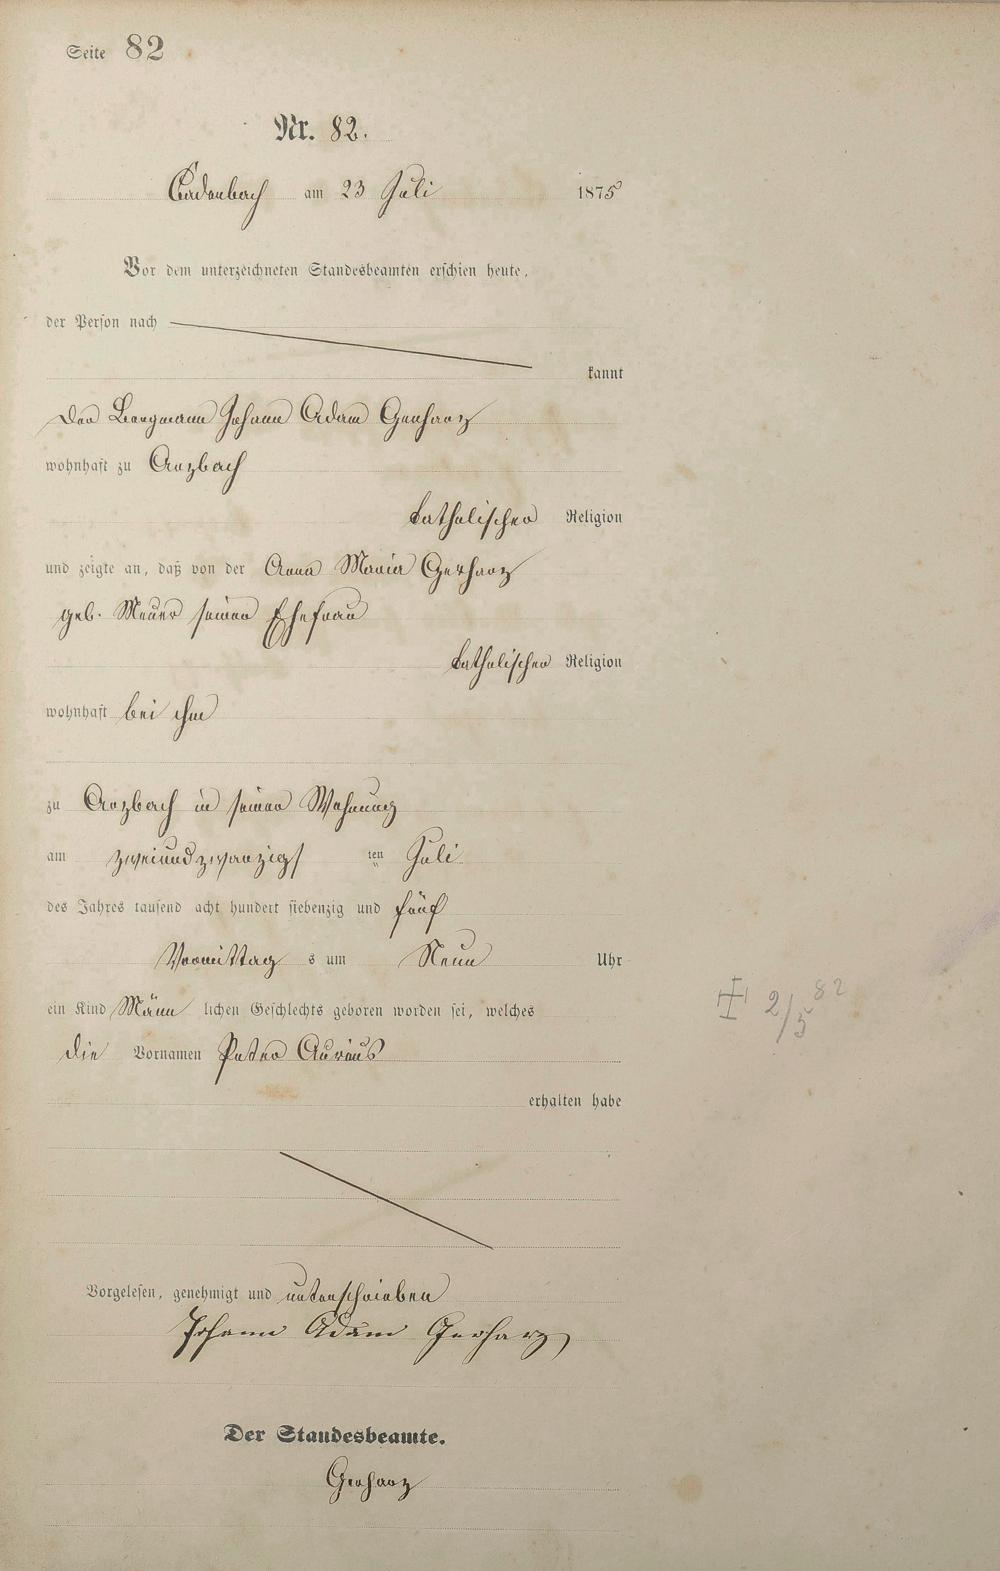 Seite 82
Nr. 82.
Cadenbach am 23 Juli 1875
Vor dem unterzeichneten Standesbeamten erschien heute,
der Person nach
kannt
Der Bergmann Johann Adam Gerharz
wohnhaft zu Arzbach
katholischer Religion
und zeigte an, daß von der Anna Maria Gerharz
geb. Meuer seiner Ehefrau
katholischer Religion
wohnhaft bei ihm
zu Arzbach in seiner Wohnung
am zweiundzwanzigs ten Juli
des Jahres tausend acht hundert siebenzig und fünf
Vormittag s um Neun Uhr
ein Kind Männ lichen Geschlechts geboren worden sei, welches
die Vornamen Peter
erhalten habe
Vorgelesen, genehmigt und unterschrieben
Johann Adam Gerharz
Der Standesbeamte.
Gerharz
2/5 82